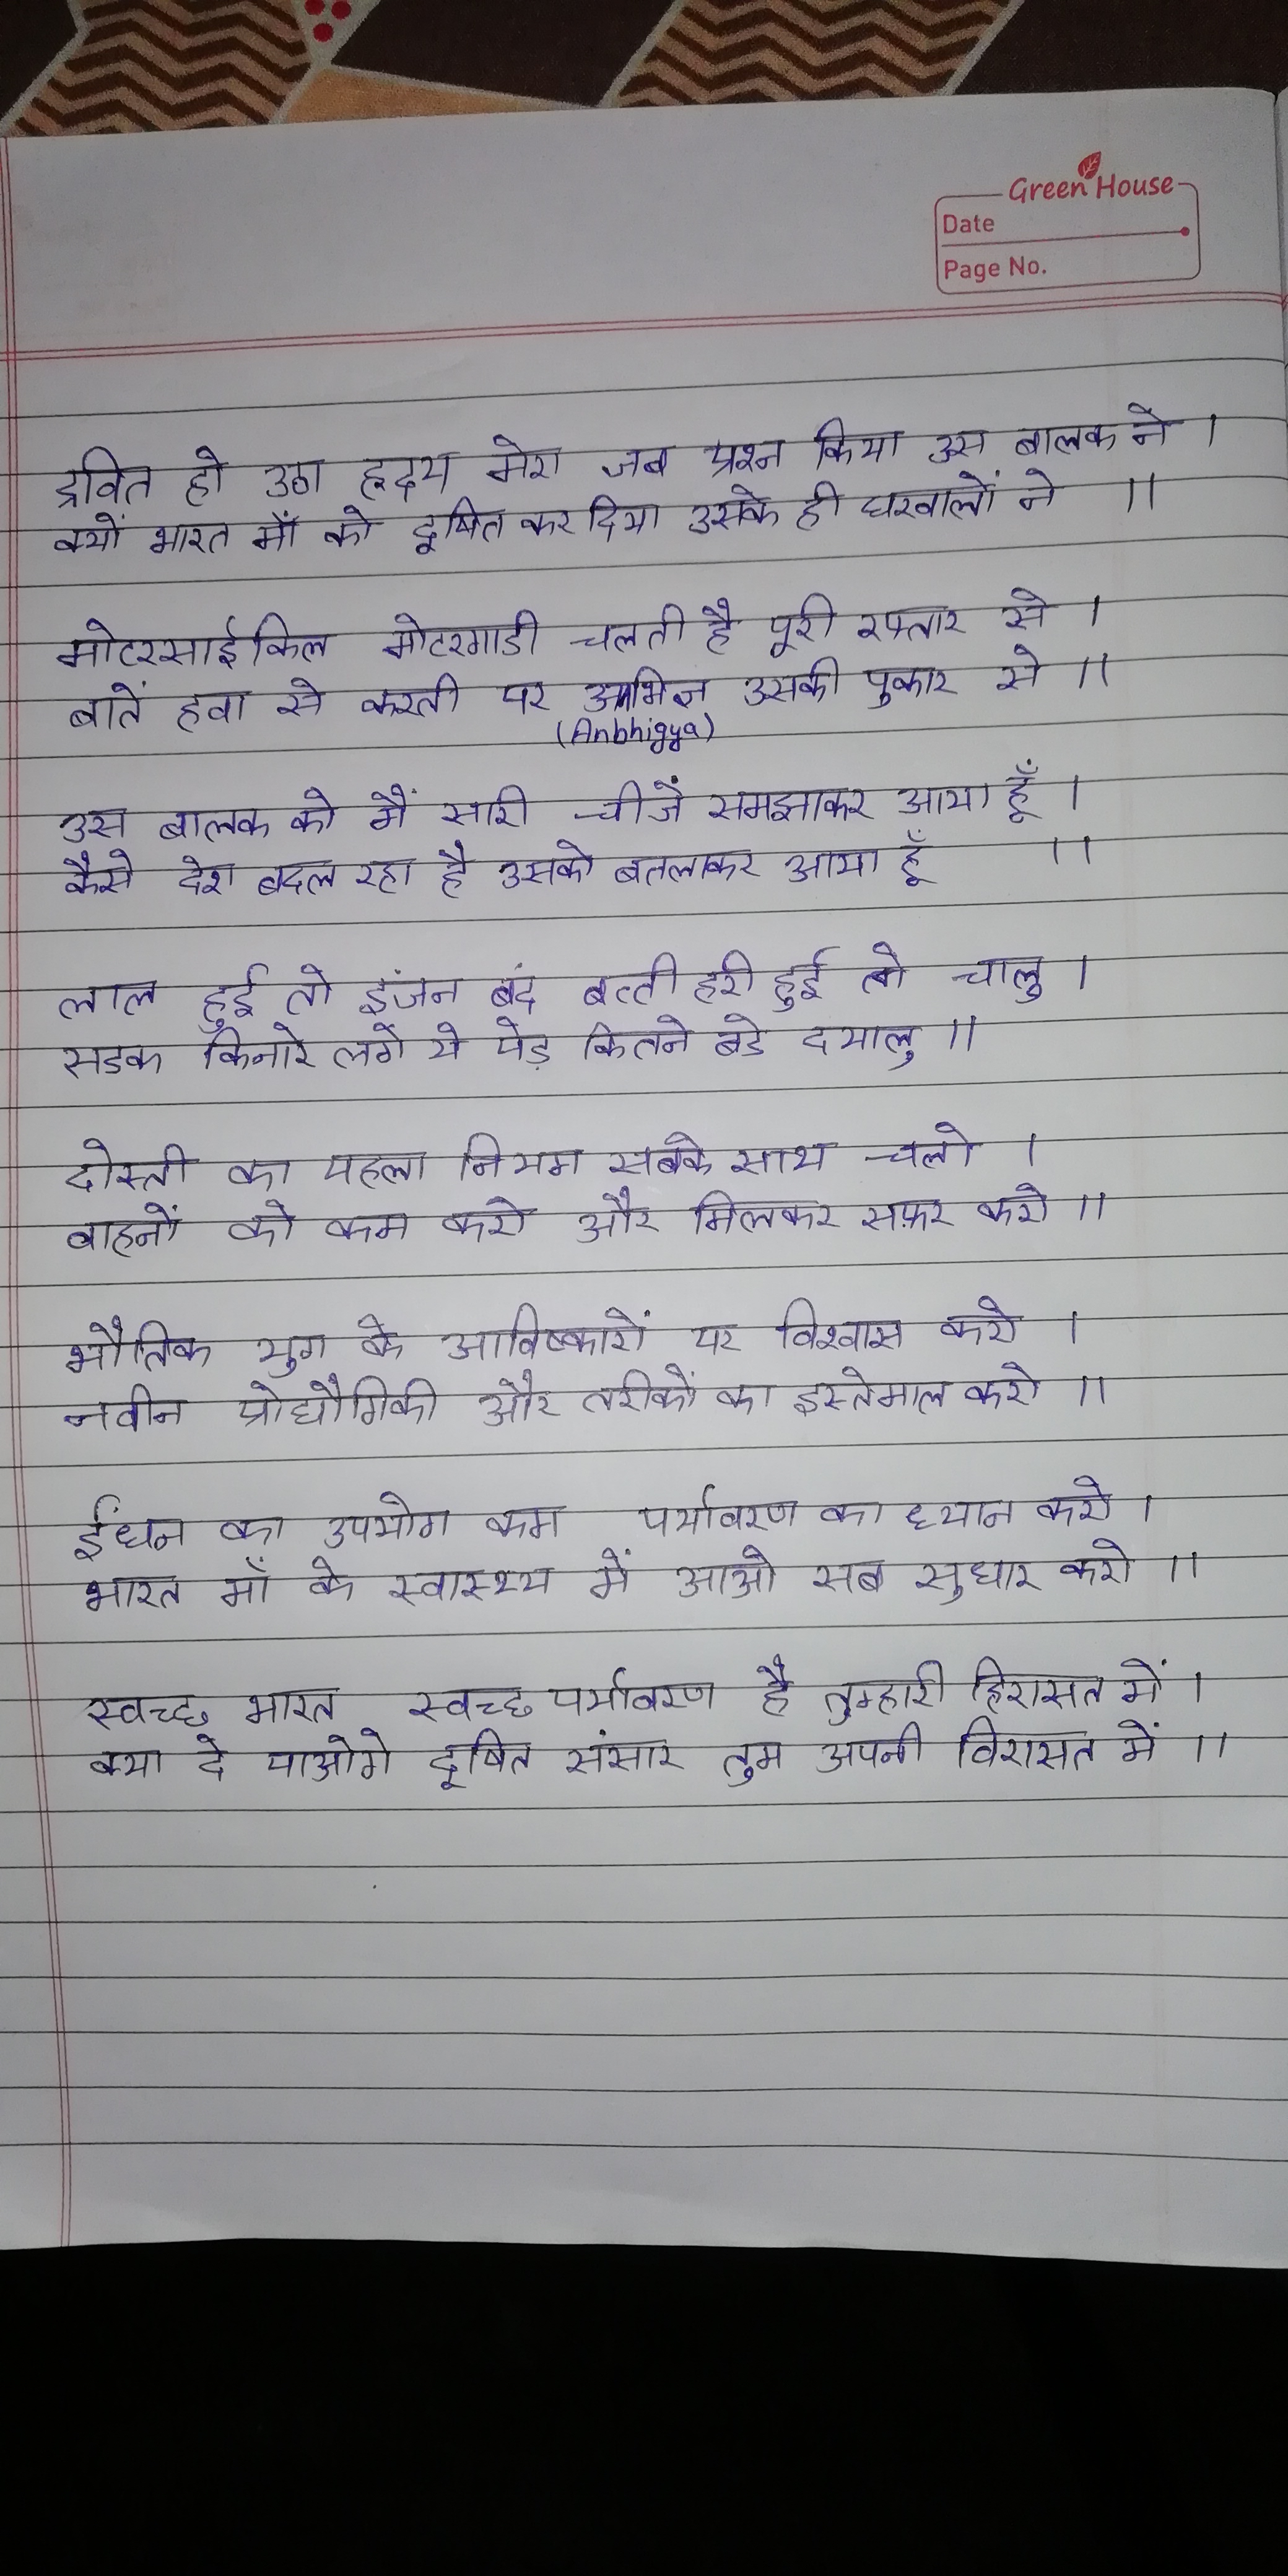 Green House
Date
Page No.
द्रवित हो उठा हृदय मेरा जब प्रश्न किया उस बालक ने ।
क्यों भारत माँ को दूषित कर दिया उसके ही घरवालों ने ॥
मोटरसाईकिल मोटरगाडी चलती है पूरी रफ्तार से ।
बातें हवा से करती पर उसकी पुकार से ॥
(Anbhigya)
उस बालक को मैं सारी चीजें समझाकर आया हूँ ।
कैसे देश बदल रहा है उसको बतलाकर आया हूँ ॥
लाल हुई तो इंजन बंद बत्ती हरी हुई तो चालु ।
सडक किनारे लगे ये पेड़ कितने बडे दयालु ॥
दोस्ती का पहला नियम सबके साथ चलो ।
वाहनों को कम करो और मिलकर सफ़र करो ॥
भौतिक युग के आविष्कारों पर विश्वास करो ।
नवीन प्रोद्यौगिकी और तरीकों का इस्तेमाल करो ॥
ईंधन का उपयोग कम पर्यावरण का ध्यान करो ।
भारत माँ के स्वास्थ्य में आओ सब सुधार करो ॥
स्वच्छ भारत स्वच्छ पर्यावरण है तुम्हारी हिरासत में ।
क्या दे पाओगे दूषित संसार तुम अपनी विरासत में ॥